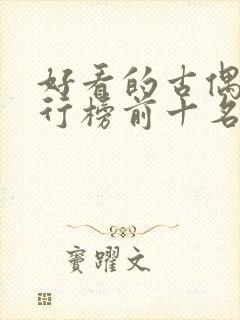 好看的古偶
行榜前十名
窦跃文